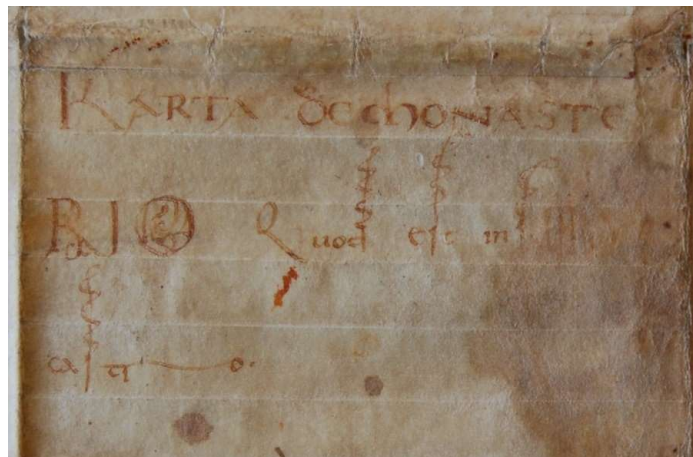 KARTA de MONASTE
RIO Quod est in
castro.